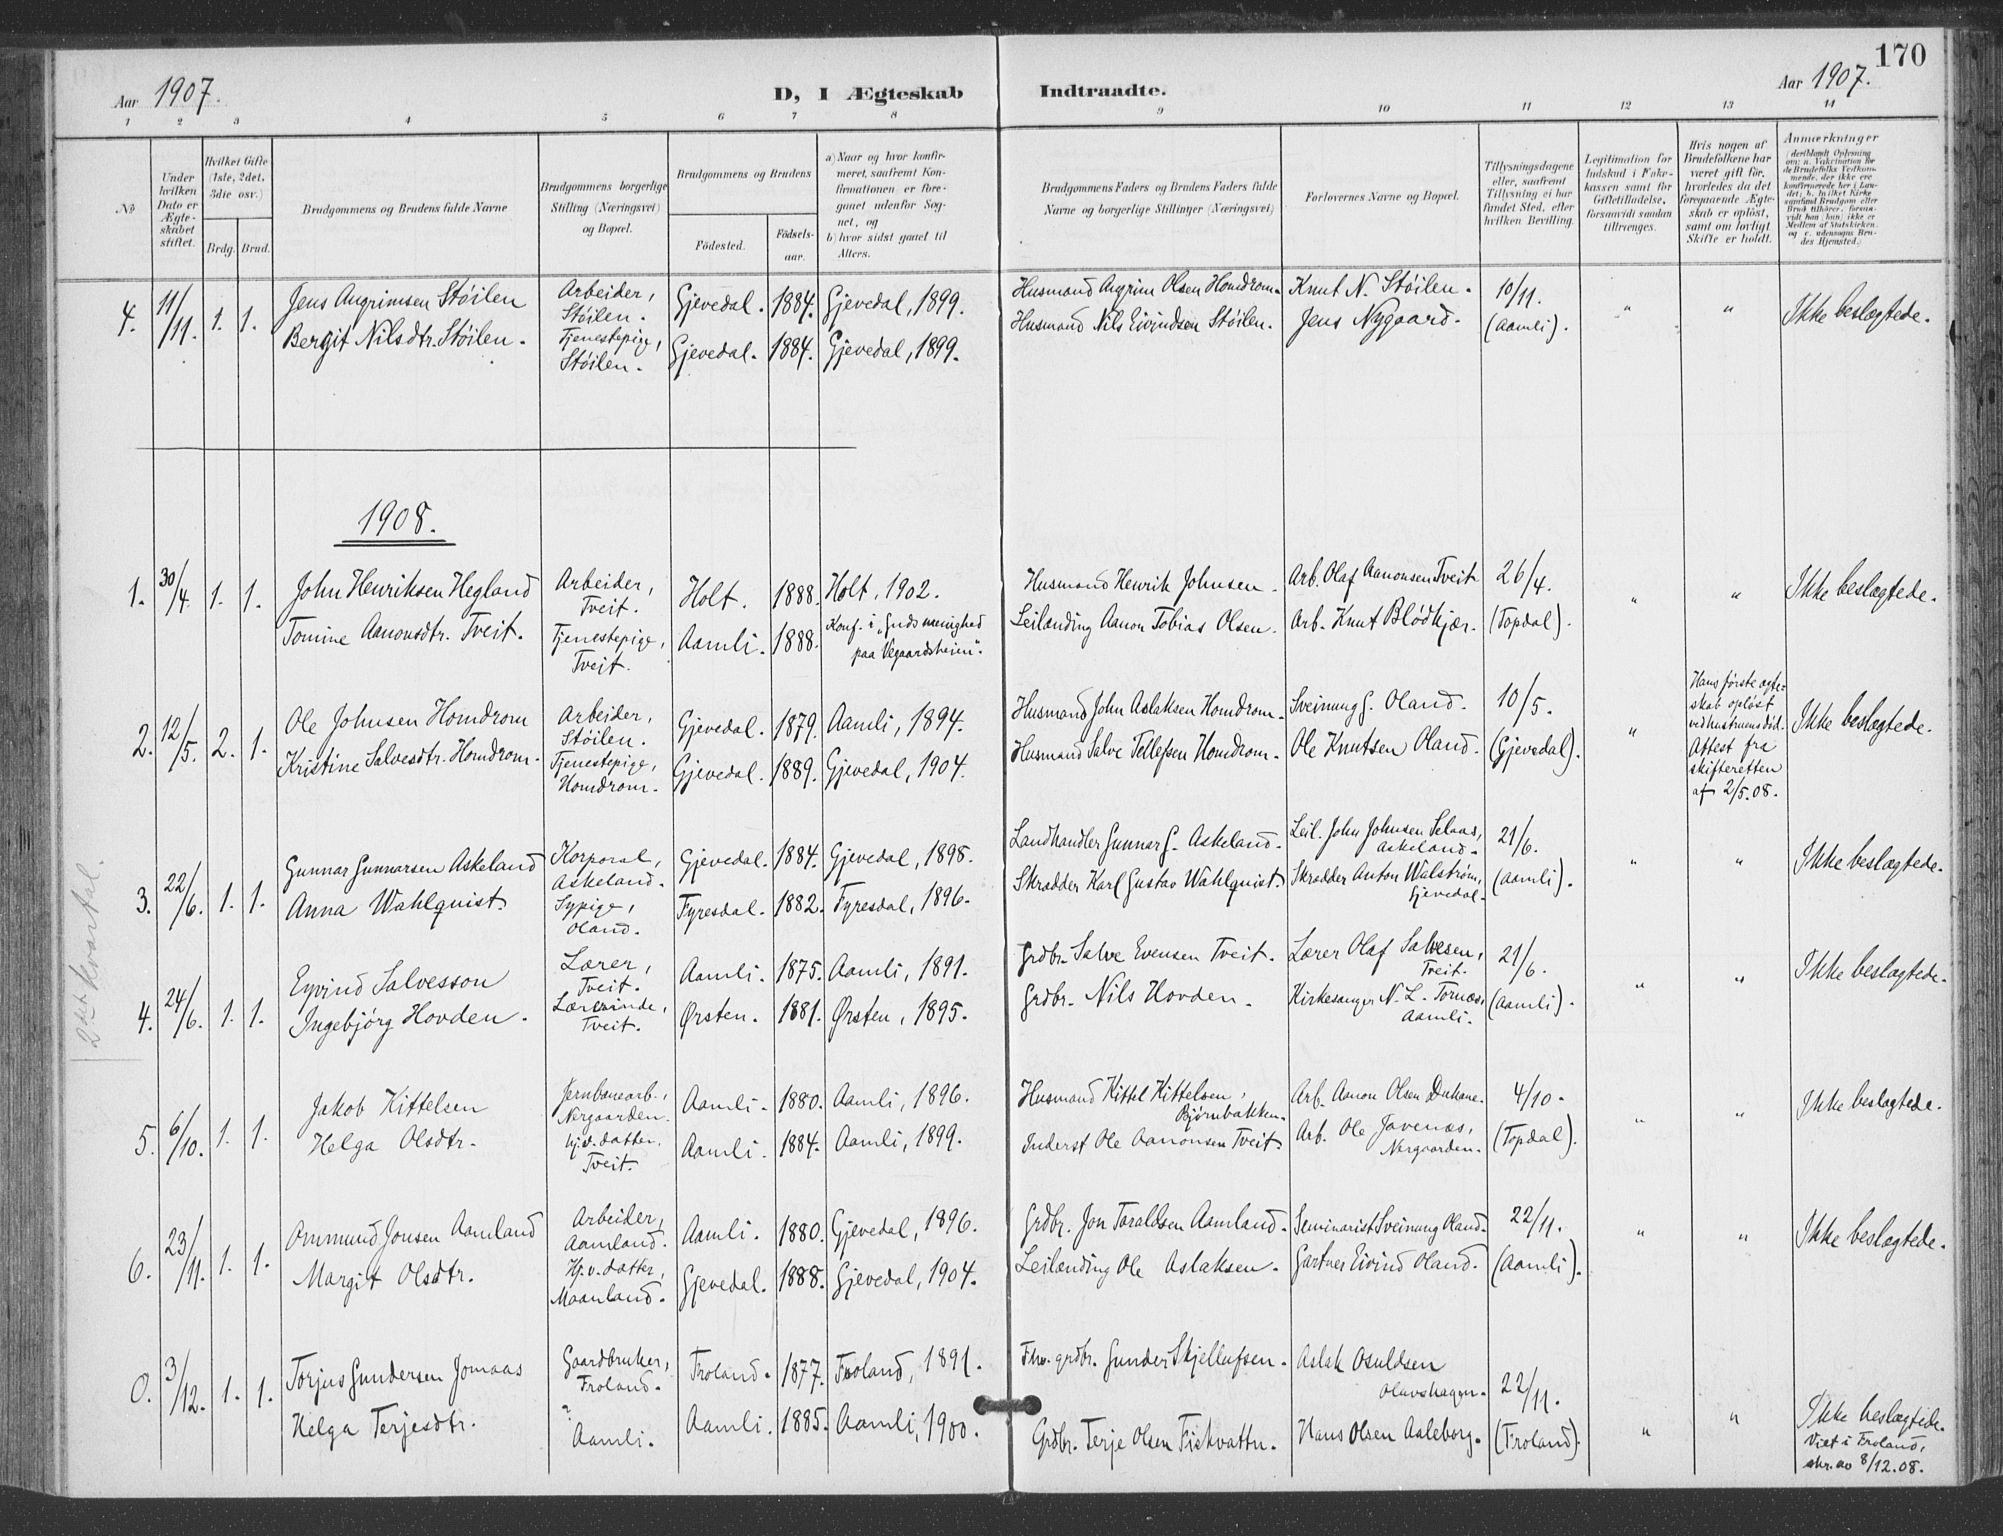 170
Aar 1907.
D, I Ægteskab Indtraadte.
Aar 1907.
1 2 3 4 5 6 7 8 9 10 11 12 13 14
No
Under hvilken Dato er Ægteskabet stiftet.
Hvilket Gifte (1ste, 2det, 3die osv.)
Brdg. Brud.
Brudgommens og Brudens fulde Navne
Brudgommens borgerlige Stilling (Næringsvei) og Bopæl.
Brudgommens og Brudens
Fødested.
Fødsels-aar.
a) Naar og hvor konfirmeret, saafremt Konfirmationen er foregaaet udenfor Sognet, og
b) hvor sidst gaaet til Alters.
Brudgommens Faders og Brudens Faders fulde Navne og borgerlige Stillinger (Næringsvei)
Forlovernes Navne og Bopæl.
Tillysningsdagene eller, saafremt Tillysning ei har fundet Sted, efter hvilken Bevilling.
Legitimation for Indskud i Enkekassen samt for Giftetilladelse, forsaavidt saadan tiltrænges.
Hvis nogen af Brudefolkene har været gift før, hvorledes da det foregaaende Ægteskab er opløst, samt om lovligt Skifte er holdt.
Anmærkninger
(deriblandt Oplysning om: a. Vakcination for de Brudefolks Vedkommende, der ikke ere konfirmerede her i Landet; b. hvilket Kirkesamfund Brudgom eller Brud tilhører, forsaavidt han (hun) ikke er Medlem af Statskirken, og c. udensogns Brudes Hjemsted.)
4. 11/11. 1. 1. Jens Angrimsen Støilen Arbeider, Støilen. Gjevedal. 1884. Gjevedal, 1899. Husmand Angrim Olsen Homdrom. Knut N. Støilen. 10/11. " " Ikke beslægtede.
Bergit Nilsdtr. Støilen. Tjenestepige, Støilen. Gjevedal. 1884. Gjevedal, 1899. Husmand Nils Eivindsen Støilen. Jens Nygaard. (Aamli).
1908.
1. 30/4. 1. 1. John Henriksen Hegland Arbeider, Tveit. Holt. 1888. Holt, 1902. Husmand Henrik Johnsen. Arb. Olaf Aanonsen Tveit 26/4. " " Ikke beslægtede.
Tomine Aanonsdtr. Tveit. Tjenestepige, Tveit. Aamli. 1888. Konf. i "Guds menighed paa Vegaardsheien". Leilænding Aanon Tobias Olsen. Arb. Knut Blødkjær. (Topdal).
2. 12/5. 2. 1. Ole Johnsen Homdrom Arbeider, Støilen. Gjevedal. 1879. Aamli, 1894. Husmand John Aslaksen Homdrom. Sveinung G. Oland. 10/5. " Hans første ægteskab opløst ved hustruens død. Attest fra skifteretten af 2/5.08. Ikke beslægtede.
Kristine Salvesdtr. Homdrom. Tjenestepige, Homdrom. Gjevedal. 1889. Gjevedal, 1904. Husmand Salve Tellefsen Homdrom. Ole Knutsen Oland. (Gjevedal).
3. 22/6. 1. 1. Gunnar Gunnarsen Askeland Korporal, Askeland. Gjevedal. 1884. Gjevedal, 1898. Landhandler Gunnar G. Askeland. Leil. John Johnsen Selaas, Askeland. 21/6. " " Ikke beslægtede.
Anna Wahlquist. Sypige, Oland. Fyresdal. 1882. Fyresdal, 1896. Skrædder Karl Gustav Wahlquist. Skrædder Anton Walstrøm, Gjevedal. (Aamli).
4. 24/6. 1. 1. Eyvind Salvesson Lærer, Tveit. Aamli. 1875. Aamli, 1891. Grdbr. Salve Evensen Tveit. Lærer Olaf Salvesen, Tveit. 21/6. " " Ikke beslægtede.
Ingebjørg Hovden. Lærerinde, Tveit. Ørsten. 1881. Ørsten, 1895. Grdbr. Nils Hovden. Kirkesanger N. L. Tornæs, Aamli. (Aamli).
2det Kvartal.
5. 6/10. 1. 1. Jakob Kittelsen Jernbanearb., Nergaarden. Aamli. 1880. Aamli, 1896. Husmand Kittel Kittelsen, Bjørnbakken. Arb. Aanon Olsen Dukane. 4/10. " " Ikke beslægtede.
Helga Olsdtr. Hjv. datter, Tveit. Aamli. 1884. Aamli, 1899. Inderst Ole Aanonsen Tveit. Arb. Ole Javenæs, Nergaarden. (Topdal).
6. 23/11. 1. 1. Ommund Jonsen Aamland Arbeider, Aamland. Aamli. 1880. Gjevedal, 1896. Grdbr. Jon Taraldsen Aamland. Seminarist Sveinung Oland. 22/11. " " Ikke beslægtede.
Margit Olsdtr. Hj.v. datter, Maanland. Gjevedal. 1888. Gjevedal, 1904. Leilænding Ole Aslaksen. Gartner Eivind Oland. (Aamli).
0. 3/12. 1. 1. Torjus Gundersen Jomaas Gaardbruker, Froland. Froland. 1877. Froland, 1891. Fhv. grdbr. Gunder Skjellufsen. Aslak Osuldsen Olavshagen. 22/11. " " Ikke beslægtede. Viet i Froland, skr. av 8/12.08.
Helga Terjesdtr. ? Aamli. Aamli. 1885. Aamli, 1900. Grdbr. Terje Olsen Fiskvattn. Hans Olsen Aaleborg. (Froland).